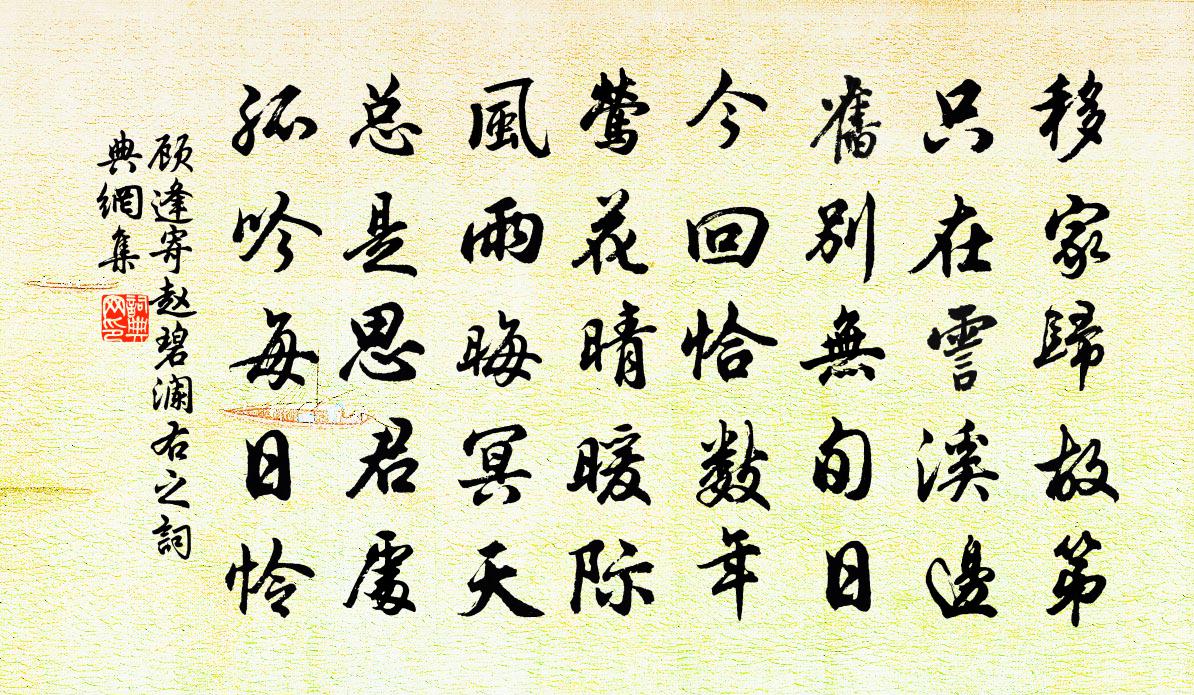 移家歸故第
只在霅溪邊
舊別無旬日
今回恰數年
鶯花晴暖际
風雨晦冥天
总是思君處
孤吟每日怜
顾逢寄赵碧澜右之詞
典網集
詞典
网印